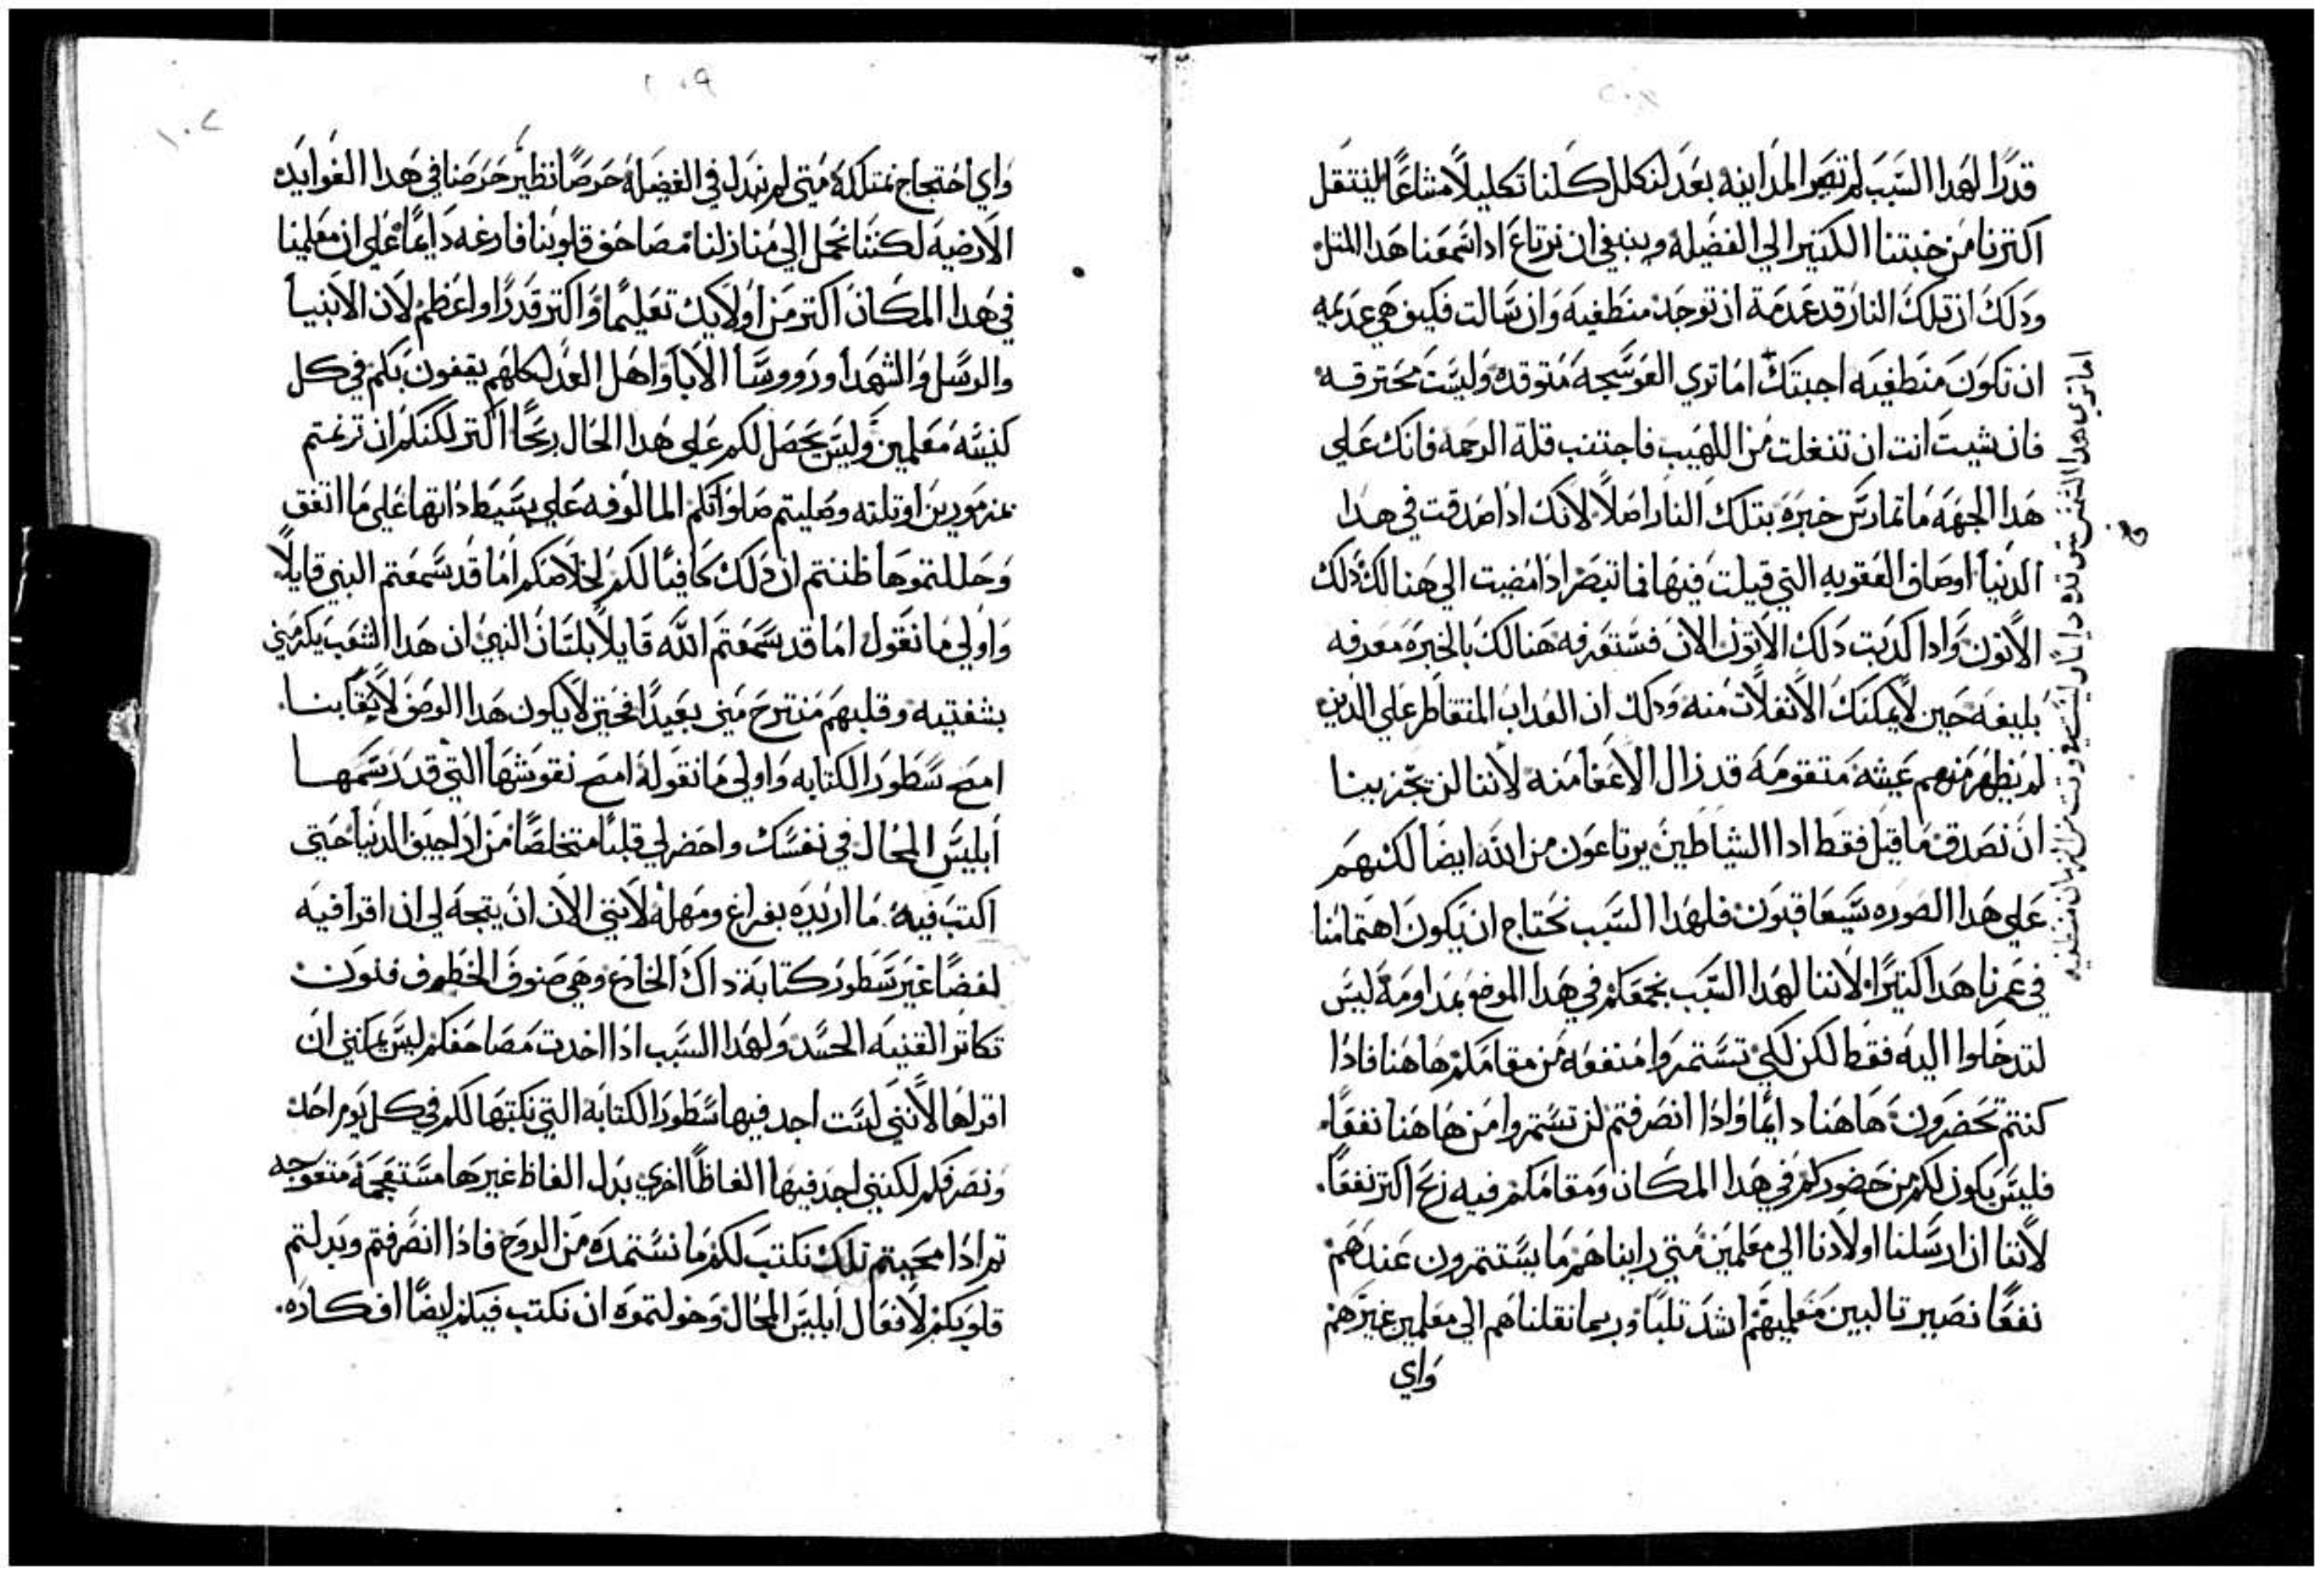 قدرًا لهدا السبب لم تصر المداينه بعد لنكلل كلنا تكليلًا مشاعًا لينتقل
اكترنا من خبتنا الكتير الي الفضيله وينبغي ان نرتاع ادا سمعنا هدا المتل
ودلك ان تلك النار قد عدمة ان توجد منطفيه وان سالت فكيف هي عديمه
ان تكون منطفيه اجبتك اما تري العوسجه متوقده وليست محترقه
فان شيت انت ان تنفلت من اللهيب فاجتنب قلة الرحمه فانك علي
هدا الجهه ما تمارس خبرة بتلك النار اصلًا لانك ادا صدقت في هدا
الدنيا اوصاف العقوبه التي قيلت فيها فما تبصر ادا مضيت الي هنالك دلك
الاتون وادا كدبت دلك الاتون الان فستعرفه هنالك بالخبره معرفه
بليغه حين لا يمكنك الانفلات منه ودلك ان العداب المتقاطر علي الدين
لم يظهر منهم عيشة متقومه قد زال الاعفا منه لاننا لن تجزينا
ان نصدق ما قيل فقط ادا الشياطين يرتاعون من الله ايضًا لكنهم
علي هدا الصوره سيعاقبون فلهدا السبب نحتاج ان يكون اهتمامنا
في عمرنا هدا كتيرًا لاننا لهدا السبب نجمعكم في هدا الموضع بمداومة ليس
لتدخلوا اليه فقط لكن لكي تستمروا منفعه من مقامكم هاهنا فادا
كنتم تحضرون هاهنا دايمًا وادا انصرفتم لن تستمروا من هاهنا نفعًا
فليس يكون لكم من حضوركم في هدا المكان ومقامكم فيه ربح اكتر نفعًا
لاننا ان ارسلنا اولادنا الي معلمين متي رايناهم ما يستتمرون عندهم
نفعًا نصير تالبين معلميهم اشد تلبًا وربما نقلناهم الي معلمين غيرهم
واي
اما تري هدا الشمس متوقده دايمًا وليست في وقت من الزمان منطفيه
واي احتجاج نمتلكه متي لم نبدل في الفضيلة حرصًا نظير حرصنا في هدا الفوايد
الارضيه لكننا نحمل الي منازلنا مصاحف قلوبنا فارغه دايمًا علي ان معلمينا
في هدا المكان اكتر من اولايك تعليمًا واكتر قدرًا واعظم لان الانبيا
والرسل والشهدا وروسا الابا واهل العدل كلهم يقفون بكم في كل
كنيسه معلمين وليس يحصل لكم علي هدا الحال ربحًا اكتر لكنكم ان ترنمتم
بمزمورين او تلته وصليتم صلواتكم المالوفه علي بسيط داتها علي ما اتفق
وحللتموها ظننتم ان دلك كافيًا لكم لخلاصكم اما قد سمعتم النبي قايلًا
واولي ما نقول اما قد سمعتم الله قايلًا بلسان النبي ان هدا الشعب يكرمني
بشفتيه وقلبهم منتزح مني بعيدًا فحتي لا يكون هدا الوصف لايقًا بنا
امح سطور الكتابه واولي ما نقوله امح نقوشها التي قد رسمها
ابليس المحال في نفسك واحضر لي قلبًا متخلصًا من اراجيف الدنيا حتي
اكتب فيه ما اريده بفراغ ومهلة لانني الان ان يتجه لي ان اقرا فيه
لفضًا غير سطور كتابة داك الخادع وهي صنوف الخطف فنون
تكاتر القنيه الحسد ولهدا السبب ادا اخدت مصاحفكم ليس يمكنني ان
اقراها لانني لست اجد فيها سطور الكتابة التي نكتبها لكم في كل يوم احد
ونصرفكم لكنني اجد فيها الفاظًا اخري بدل الفاظ غيرها مستعجمة متعوجه
تم ادا محيتم تلك نكتب لكم ما نستمده من الروح فادا انصرفتم وبدلتم
قلوبكم لافعال ابليس المحال وخولتموه ان نكتب فيكم ايضًا افكاره